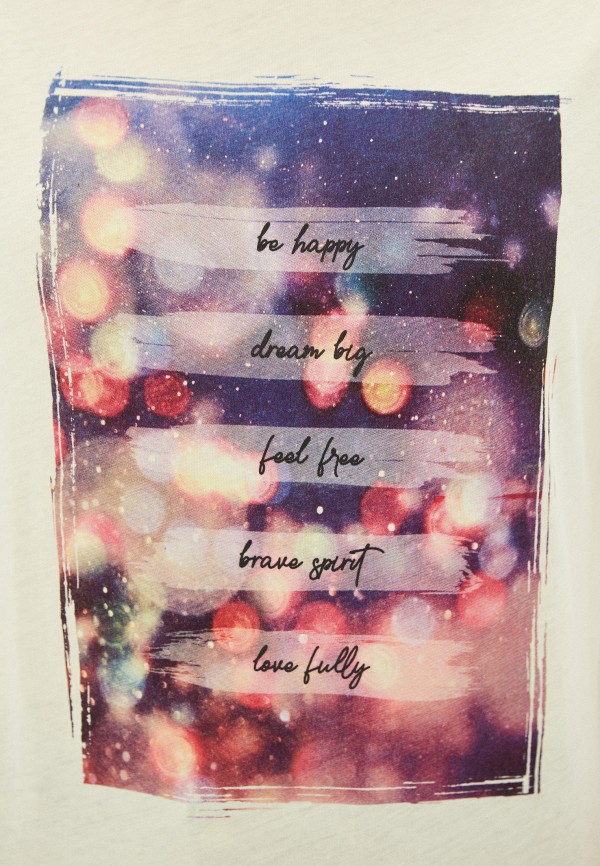 be happy
dream big
feel free
brave spirit
love fully